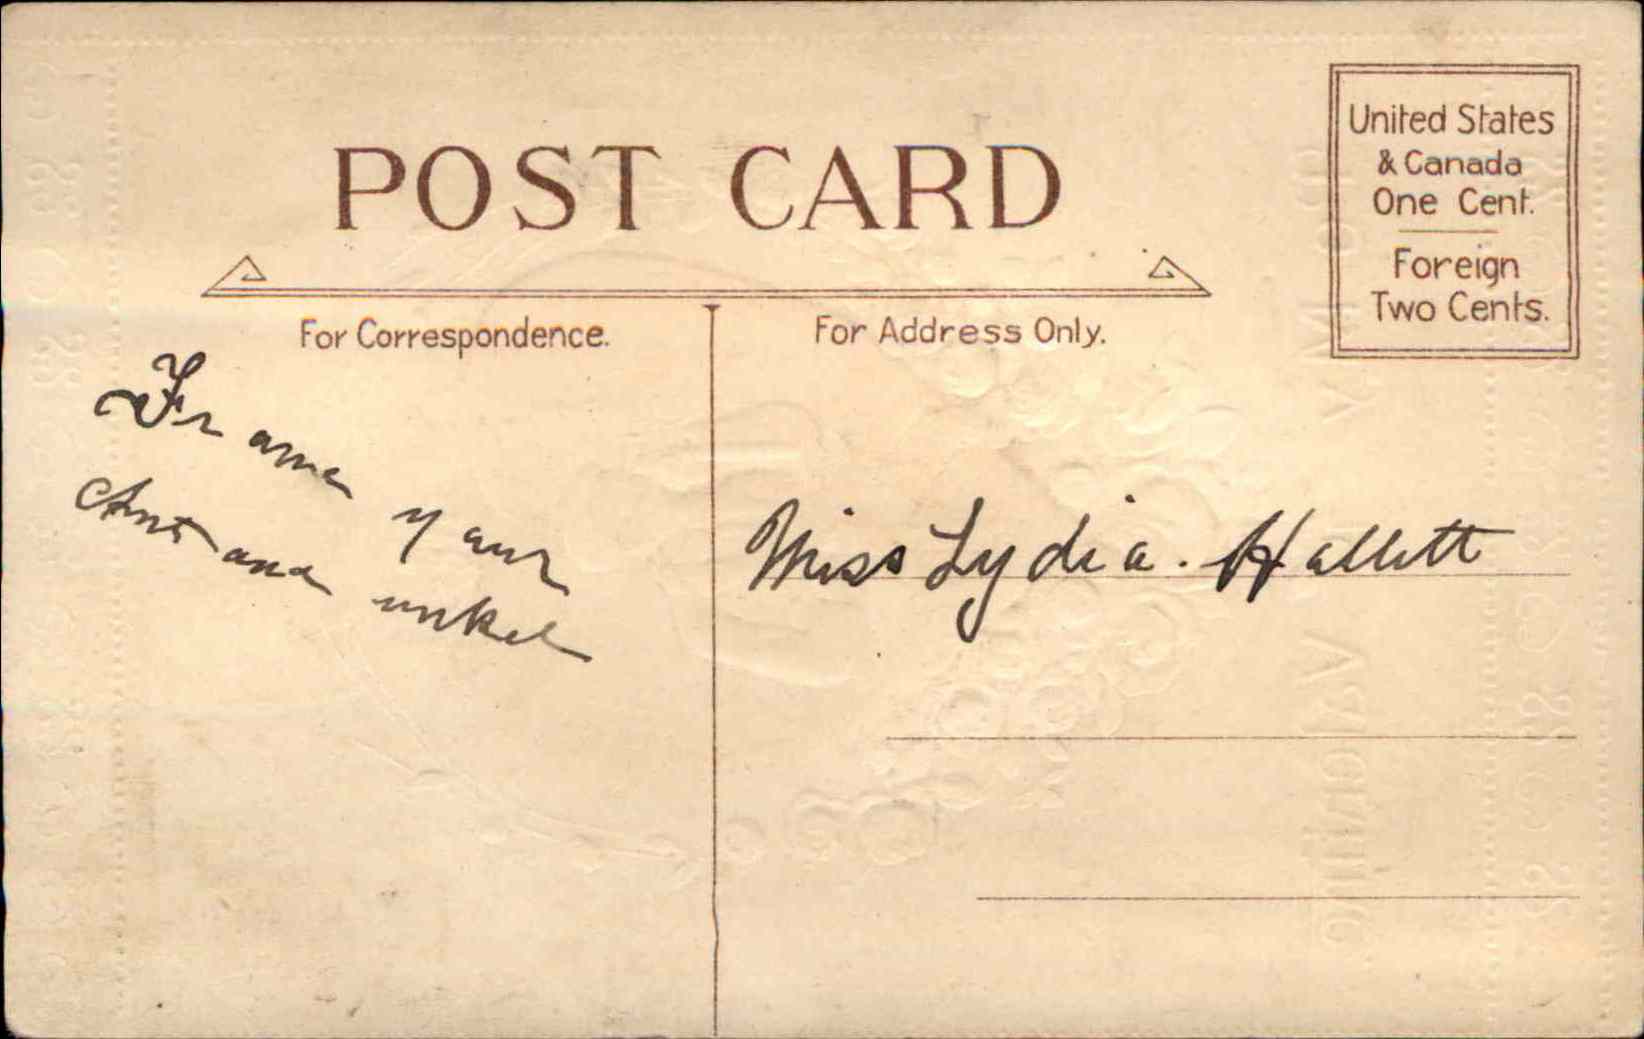 POST CARD
United States
& Canada
One Cent.
Foreign
Two Cents.
For Correspondence.
For Address Only.
your
Ant and unkel
Miss Lydia. Hallett